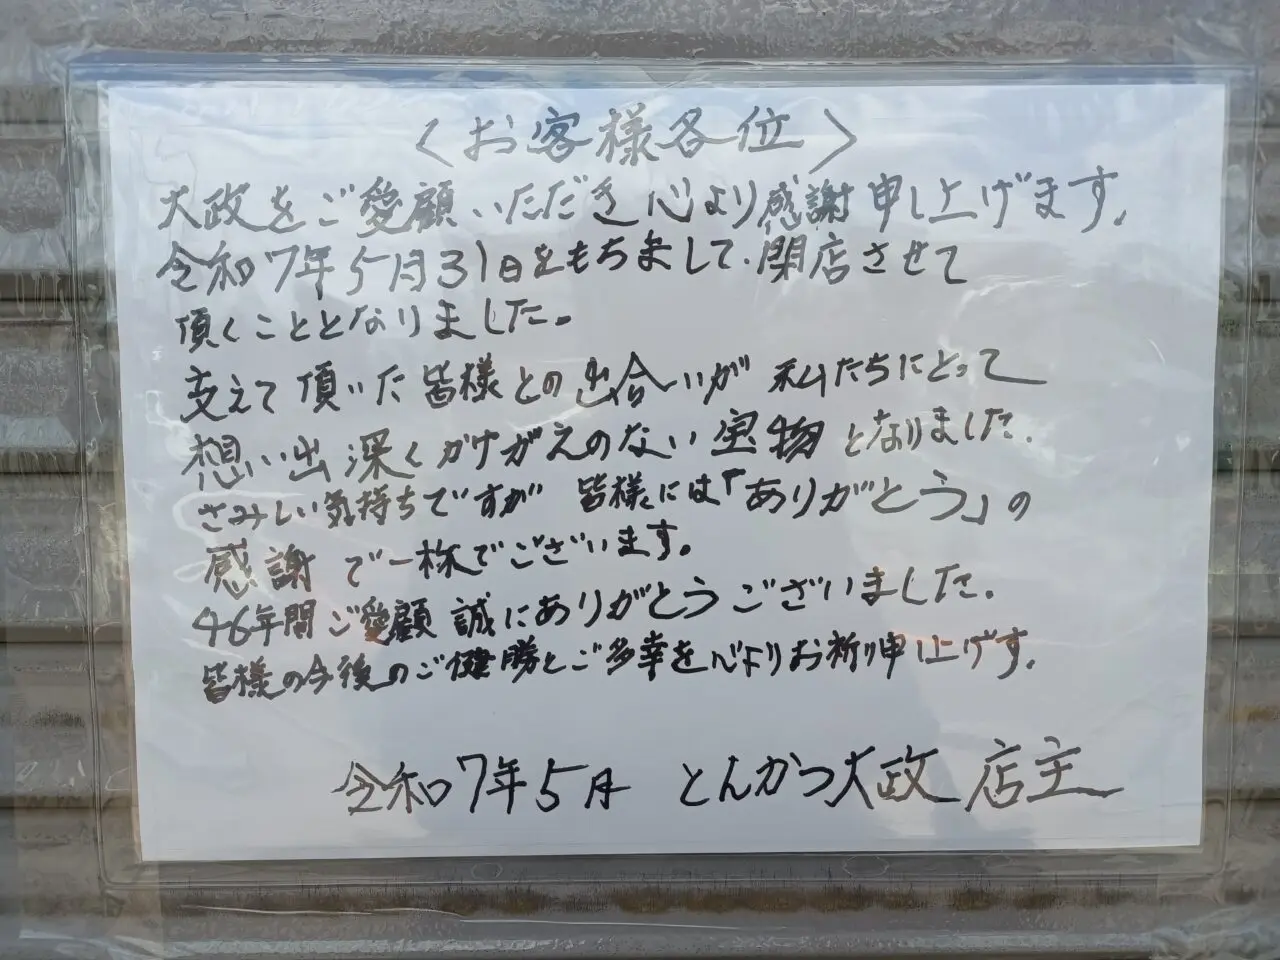 〈お客様各位〉
大政をご愛顧いただき心より感謝申し上げます。
令和7年5月31日をもちまして、閉店させて
頂くこととなりました。
支えて頂いた皆様との出合いが私たちにとって
想い出深くかけがえのない宝物となりました。
さみしい気持ちですが 皆様には「ありがとう」の
感謝で一杯でございます。
46年間ご愛顧誠にありがとうございました。
皆様の今後のご健勝とご多幸を心よりお祈り申し上げす。
令和7年5月 とんかつ大政 店主